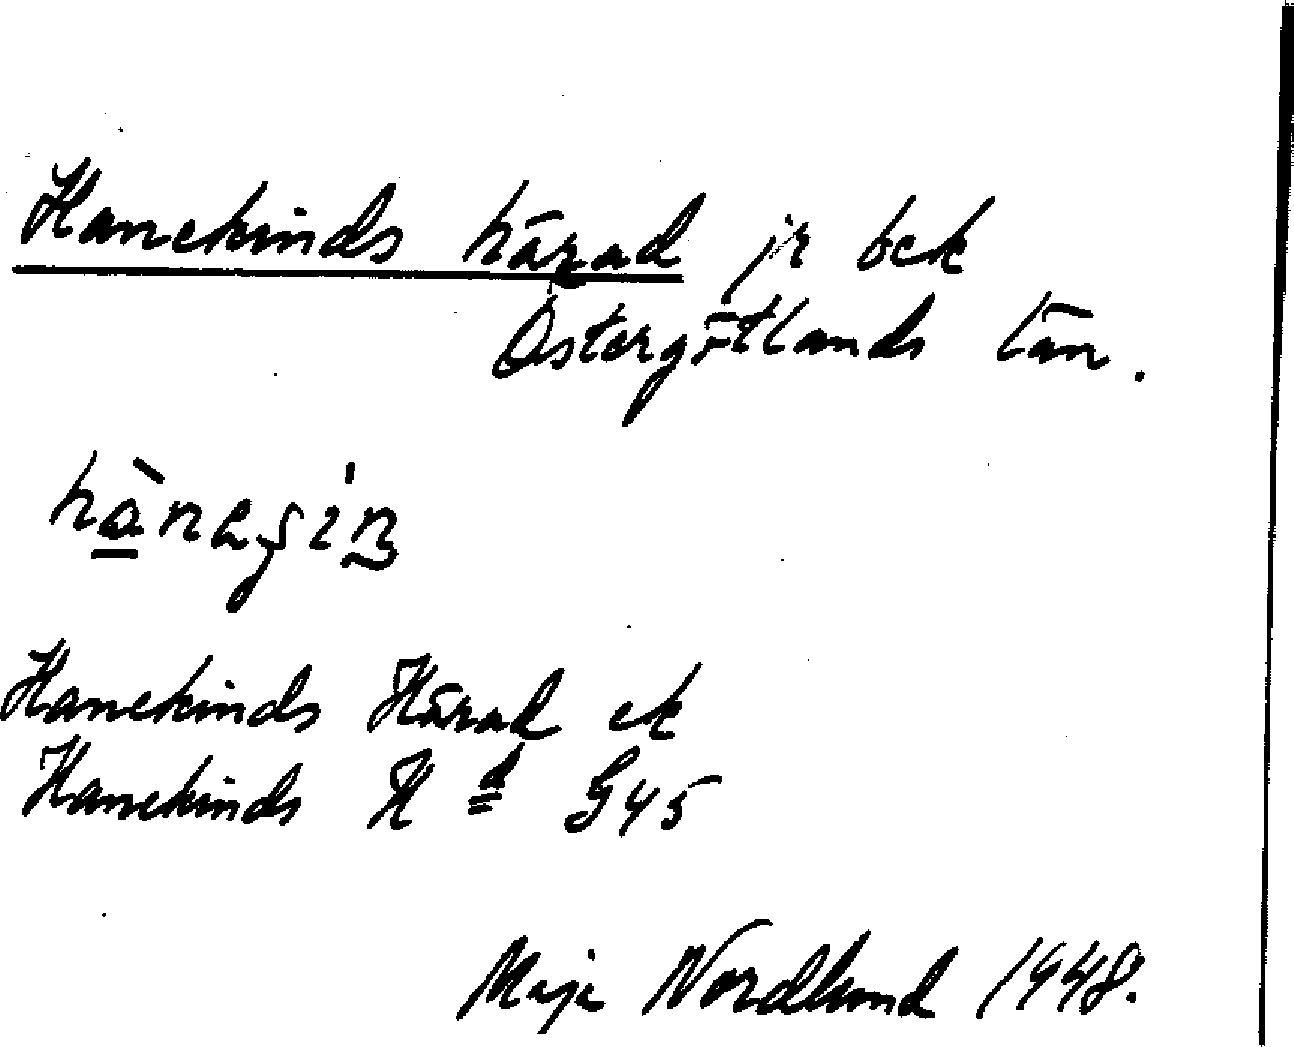 Hanekinds härad jr bek
Östergötlands län.
Hanekinds Härad ek
Hanekinds H d G45
Maja Nordlund 1948.